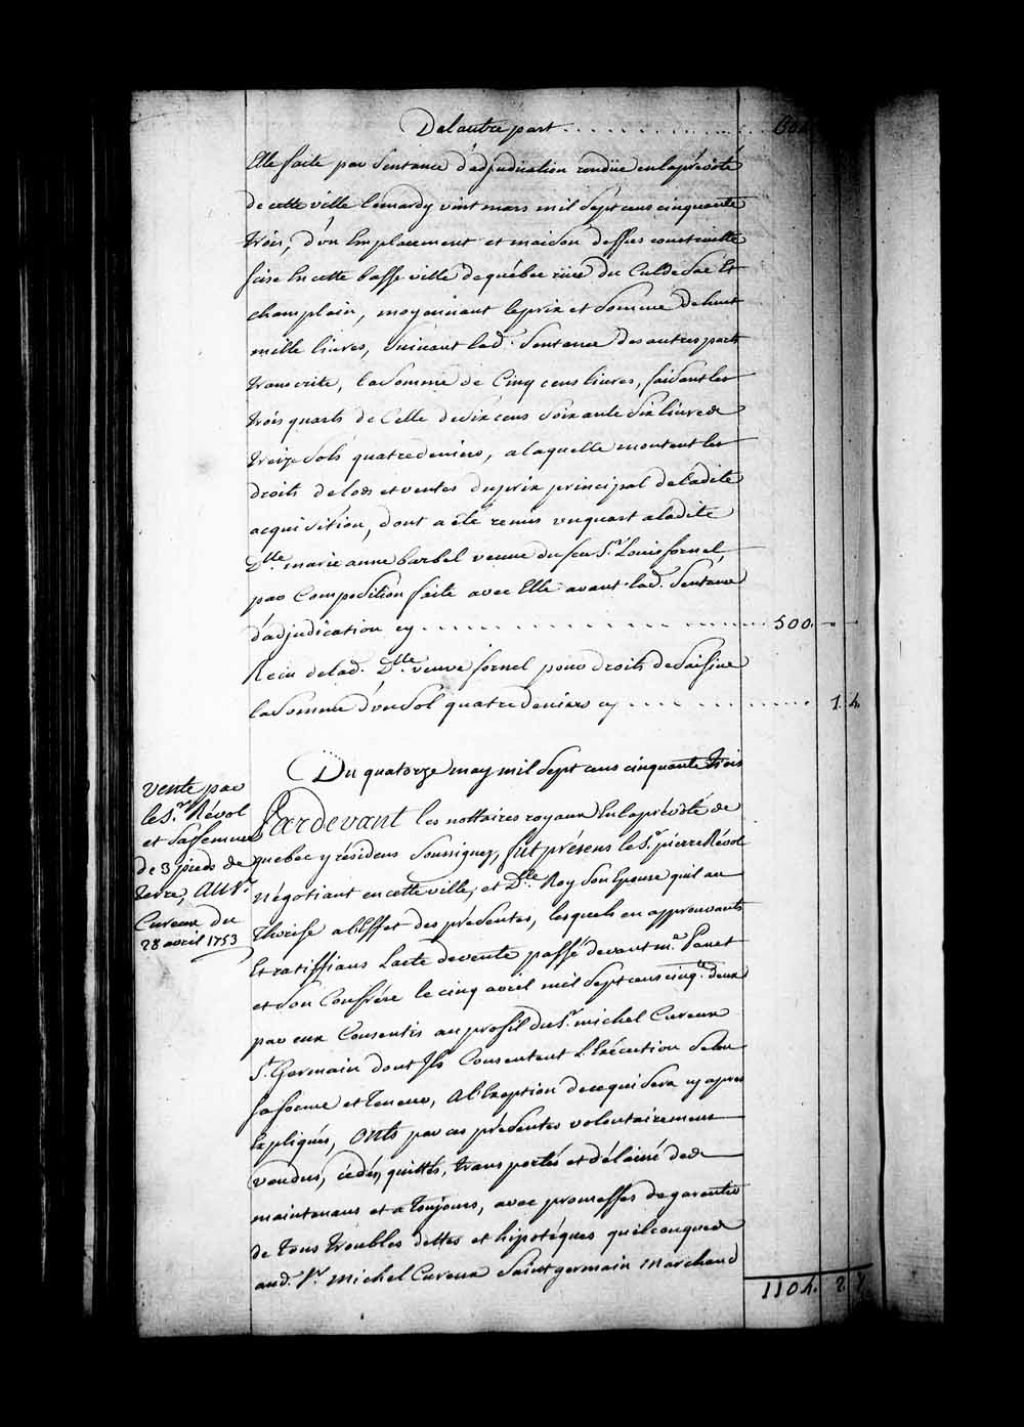 De l'autre part . . . . . . . . . . . . 604
Elle faite par Sentance d'adjudication rendüe en la prévoté
de cette ville le mardy vint mars mil Sept cens cinquante
trois, d'un Emplacement et maison dessus construitte
Size En cette basse ville de québec rüe du Culdesac Et
champlain, moyennant le prix et Somme de huit
mille livres, Suivant lad. Sentance des autres parts
transcrite, la Somme de Cinq cens livres, faisant les
trois quarts de Celle de Six cens Soixante Six livres
treize Sols quatre deniers, a laquelle montent les
droits de lods et ventes du prix principal de ladite
acquisition, dont a été remis un quart a ladite
Dlle. marie anne barbel veuve du feu Sr. Louis fornel,
par Composition faite avec Elle avant lad. Sentance
d'adjudication cy . . . . . . . . . . 500. - -
Reçu de lad. Dlle. veuve fornel pour droits de Saisine
la Somme d'un Sol quatre deniers cy . . . . . . . . 1. 4.
Du quatorze may mil Sept cens cinquante trois
vente par
le Sr. Révol
et Sa femme
de 3 pieds de
terre, au Sr.
Cureux du
28 avril 1753
Pardevant les nottaires royaux En la prévoté de
quebec y résidens Soussignez, fut présens le Sr. pierre Révol
négotiant en cette ville, et Dlle. Roy Son Epouse qu'il au
thorise a l'Effet des présentes, lesquels en approuvants
Et ratiffians l'acte de vente passé devant me. Panet
et Son Confrére le cinq avril mil Sept cens cinqte. deux
par eux Consentis au profit du Sr. michel Cureux
St. Germain dont Ils Consentent l'Exécution Selon
Sa forme et teneur, a l'Exception de ce qui Sera cy apres
Expliqués, onts par ces présentes volontairement
vendus, cédés, quittés, transportés et délaissé des
maintenans et a toujours, avec promesses de garentir
de tous troubles dettes et hipotéques quelconques
aud. Sr. Michel Cureux Saint germain Marchand
1104. 2.